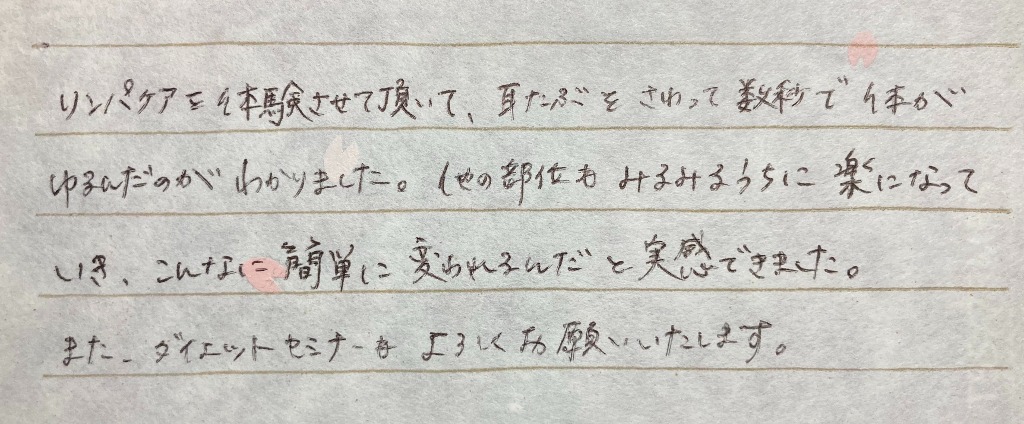 リンパケアを体験させて頂いて、耳たぶをさわって数秒で体が
ゆるんだのがわかりました。他の部位もみるみるうちに楽になって
いき、こんなに簡単に変われるんだと実感できました。
また、ダイエットセミナーをよろしくお願いいたします。